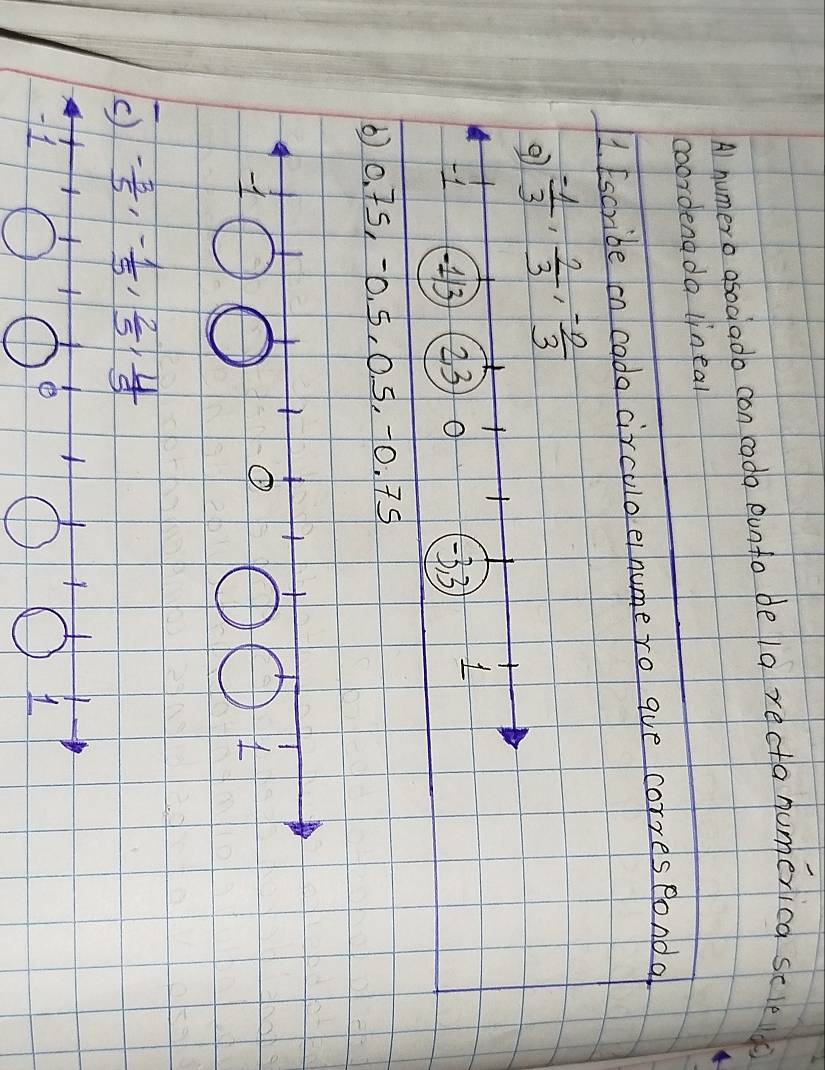 Al numero asociado con cada punto de la recta numérica se le
coordenada lineal
1. Escribe en cada circulo el numero que corresponda
a) -1/3, 2/3, -2/3
-1 -1/3 2/3 0 -3,3 1
b) 0.75, -0.5, 0.5, -0.75
-1 0 1
c) -3/5, -1/5, 2/5, 4/5
-1 0 1